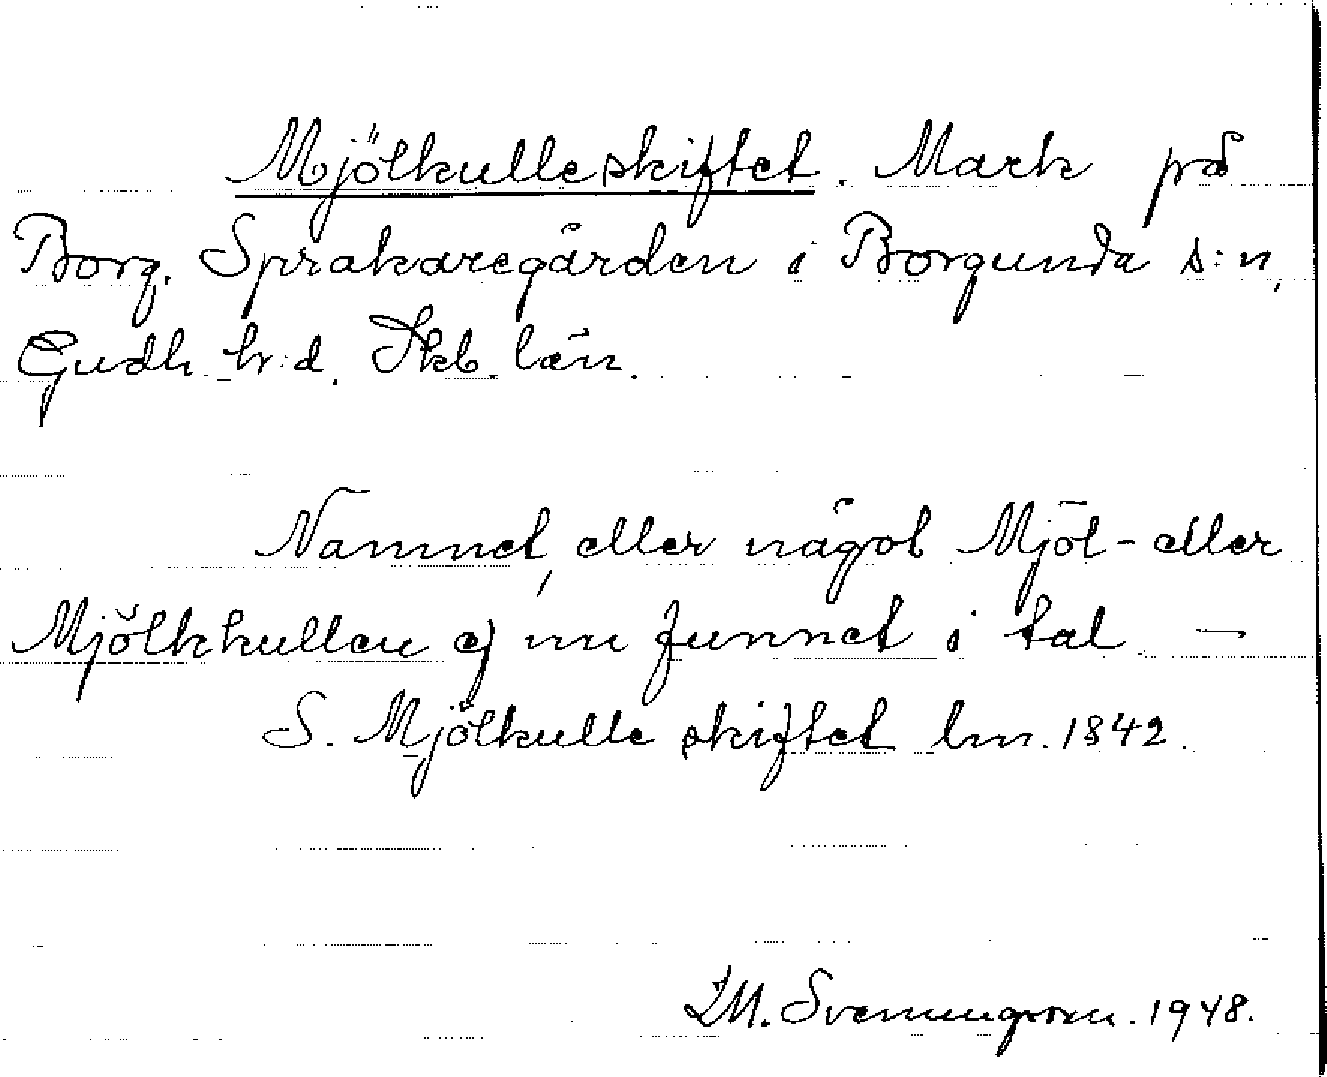 Mjölkulleskiftet. Mark på
Borg. Sprakaregården i Borgunda s:n,
Gudh. h:d. Skb. län.
Namnet, eller något Mjöl- eller
Mjölkkullen ej nu funnet i tal —
S. Mjölkulle skiftet lm. 1842.
Svenungsson. 1948.